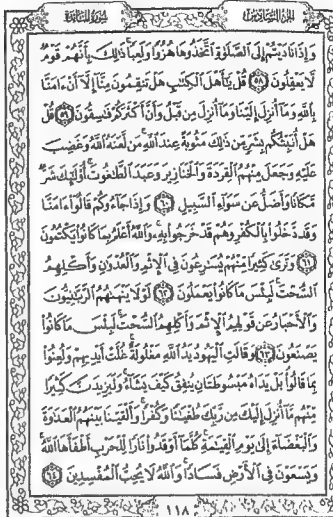 الجزء السادس
سورة المائدة
وَإِذَا نَادَيْتُمْ إِلَى ٱلصَّلَوٰةِ ٱتَّخَذُوهَا هُزُوًا وَلَعِبًا ذَٰلِكَ بِأَنَّهُمْ قَوْمٌ
لَّا يَعْقِلُونَ ٥٨ قُلْ يَـٰٓأَهْلَ ٱلْكِتَـٰبِ هَلْ تَنقِمُونَ مِنَّآ إِلَّآ أَنْ ءَامَنَّا
بِٱللَّهِ وَمَآ أُنزِلَ إِلَيْنَا وَمَآ أُنزِلَ مِن قَبْلُ وَأَنَّ أَكْثَرَكُمْ فَـٰسِقُونَ ٥٩ قُلْ
هَلْ أُنَبِّئُكُم بِشَرٍّ مِّن ذَٰلِكَ مَثُوبَةً عِندَ ٱللَّهِ مَن لَّعَنَهُ ٱللَّهُ وَغَضِبَ
عَلَيْهِ وَجَعَلَ مِنْهُمُ ٱلْقِرَدَةَ وَٱلْخَنَازِيرَ وَعَبَدَ ٱلطَّـٰغُوتَ أُو۟لَـٰٓئِكَ شَرٌّ
مَّكَانًا وَأَضَلُّ عَن سَوَآءِ ٱلسَّبِيلِ ٦٠ وَإِذَا جَآءُوكُمْ قَالُوٓا۟ ءَامَنَّا
وَقَد دَّخَلُوا۟ بِٱلْكُفْرِ وَهُمْ قَدْ خَرَجُوا۟ بِهِۦ وَٱللَّهُ أَعْلَمُ بِمَا كَانُوا۟ يَكْتُمُونَ
٦١ وَتَرَىٰ كَثِيرًا مِّنْهُمْ يُسَـٰرِعُونَ فِى ٱلْإِثْمِ وَٱلْعُدْوَٰنِ وَأَكْلِهِمُ
ٱلسُّحْتَ لَبِئْسَ مَا كَانُوا۟ يَعْمَلُونَ ٦٢ لَوْلَا يَنْهَىٰهُمُ ٱلرَّبَّـٰنِيُّونَ
وَٱلْأَحْبَارُ عَن قَوْلِهِمُ ٱلْإِثْمَ وَأَكْلِهِمُ ٱلسُّحْتَ لَبِئْسَ مَا كَانُوا۟
يَصْنَعُونَ ٦٣ وَقَالَتِ ٱلْيَهُودُ يَدُ ٱللَّهِ مَغْلُولَةٌ غُلَّتْ أَيْدِيهِمْ وَلُعِنُوا۟
بِمَا قَالُوا۟ بَلْ يَدَاهُ مَبْسُوطَتَانِ يُنفِقُ كَيْفَ يَشَآءُ وَلَيَزِيدَنَّ كَثِيرًا
مِّنْهُم مَّآ أُنزِلَ إِلَيْكَ مِن رَّبِّكَ طُغْيَـٰنًا وَكُفْرًا وَأَلْقَيْنَا بَيْنَهُمُ ٱلْعَدَٰوَةَ
وَٱلْبَغْضَآءَ إِلَىٰ يَوْمِ ٱلْقِيَـٰمَةِ كُلَّمَآ أَوْقَدُوا۟ نَارًا لِّلْحَرْبِ أَطْفَأَهَا ٱللَّهُ
وَيَسْعَوْنَ فِى ٱلْأَرْضِ فَسَادًا وَٱللَّهُ لَا يُحِبُّ ٱلْمُفْسِدِينَ ٦٤
١١٨